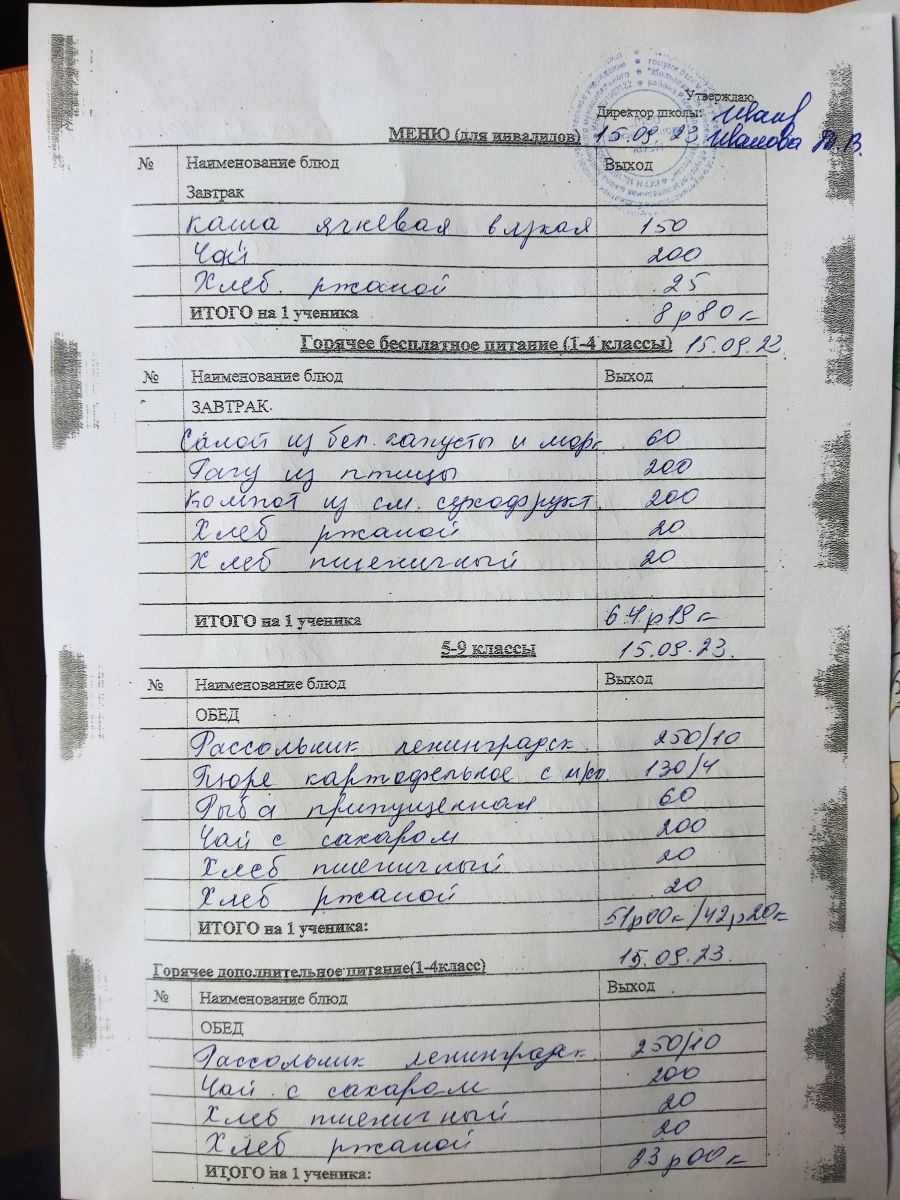 Утверждаю
Директор школы:
МЕНЮ (для инвалидов) 15.09.23 Иванова
№ Наименование блюд Выход
Завтрак
Каша ячневая вязкая 150
Чай 200
Хлеб ржаной 25
ИТОГО на 1 ученика 8р80к
Горячее бесплатное питание (1-4 классы) 15.09.23.
№ Наименование блюд Выход
ЗАВТРАК
Салат из бел. капусты и морк. 60
Рагу из птицы 200
Компот из см. сухофрукт. 200
Хлеб ржаной 20
Хлеб пшеничный 20
ИТОГО на 1 ученика 64р19к
5-9 классы 15.09.23.
№ Наименование блюд Выход
ОБЕД
Рассольник ленинградск. 250/10
Пюре картофельное с м/сл. 130/4
Рыба припущенная 60
Чай с сахаром 200
Хлеб пшеничный 20
Хлеб ржаной 20
ИТОГО на 1 ученика: 51р00к/42р20к
Горячее дополнительное питание(1-4класс) 15.09.23.
№ Наименование блюд Выход
ОБЕД
Рассольник ленинградск. 250/10
Чай с сахаром 200
Хлеб пшеничный 20
Хлеб ржаной 20
ИТОГО на 1 ученика: 23р00к